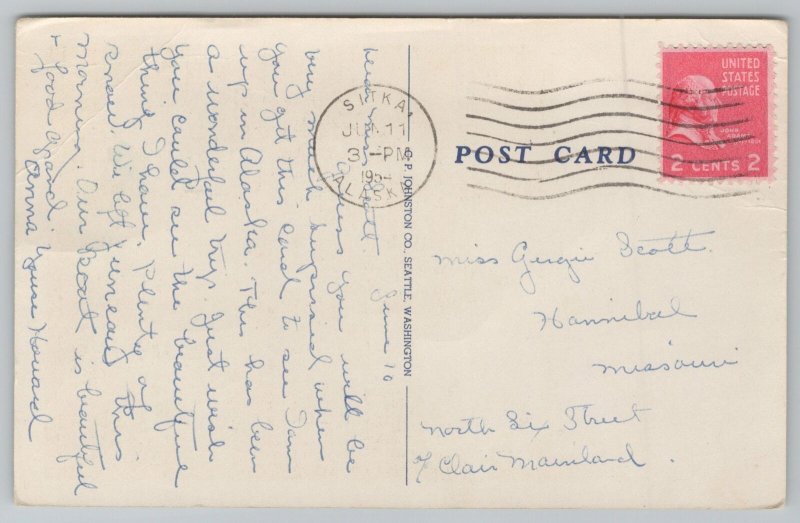 June 10
Dear Miss Scott
I guess you will be
very much surprised when
you get this card to see I am
up in Alaska. This has been
a wonderful trip. Just wish
you could see the beautiful
things I have, plenty of
snow. We left Juneau this
morning. Our Boat is beautiful
+ food grand.
Anna Howard
C. P. JOHNSTON CO., SEATTLE, WASHINGTON
SITKA,
JUN 11
3-PM
ALASKA
POST CARD
UNITED
STATES
POSTAGE
JOHN
ADAMS
2 CENTS 2
Miss Georgie Scott.
Hannibal
Missouri
North Six Street
% Clair Mainland.